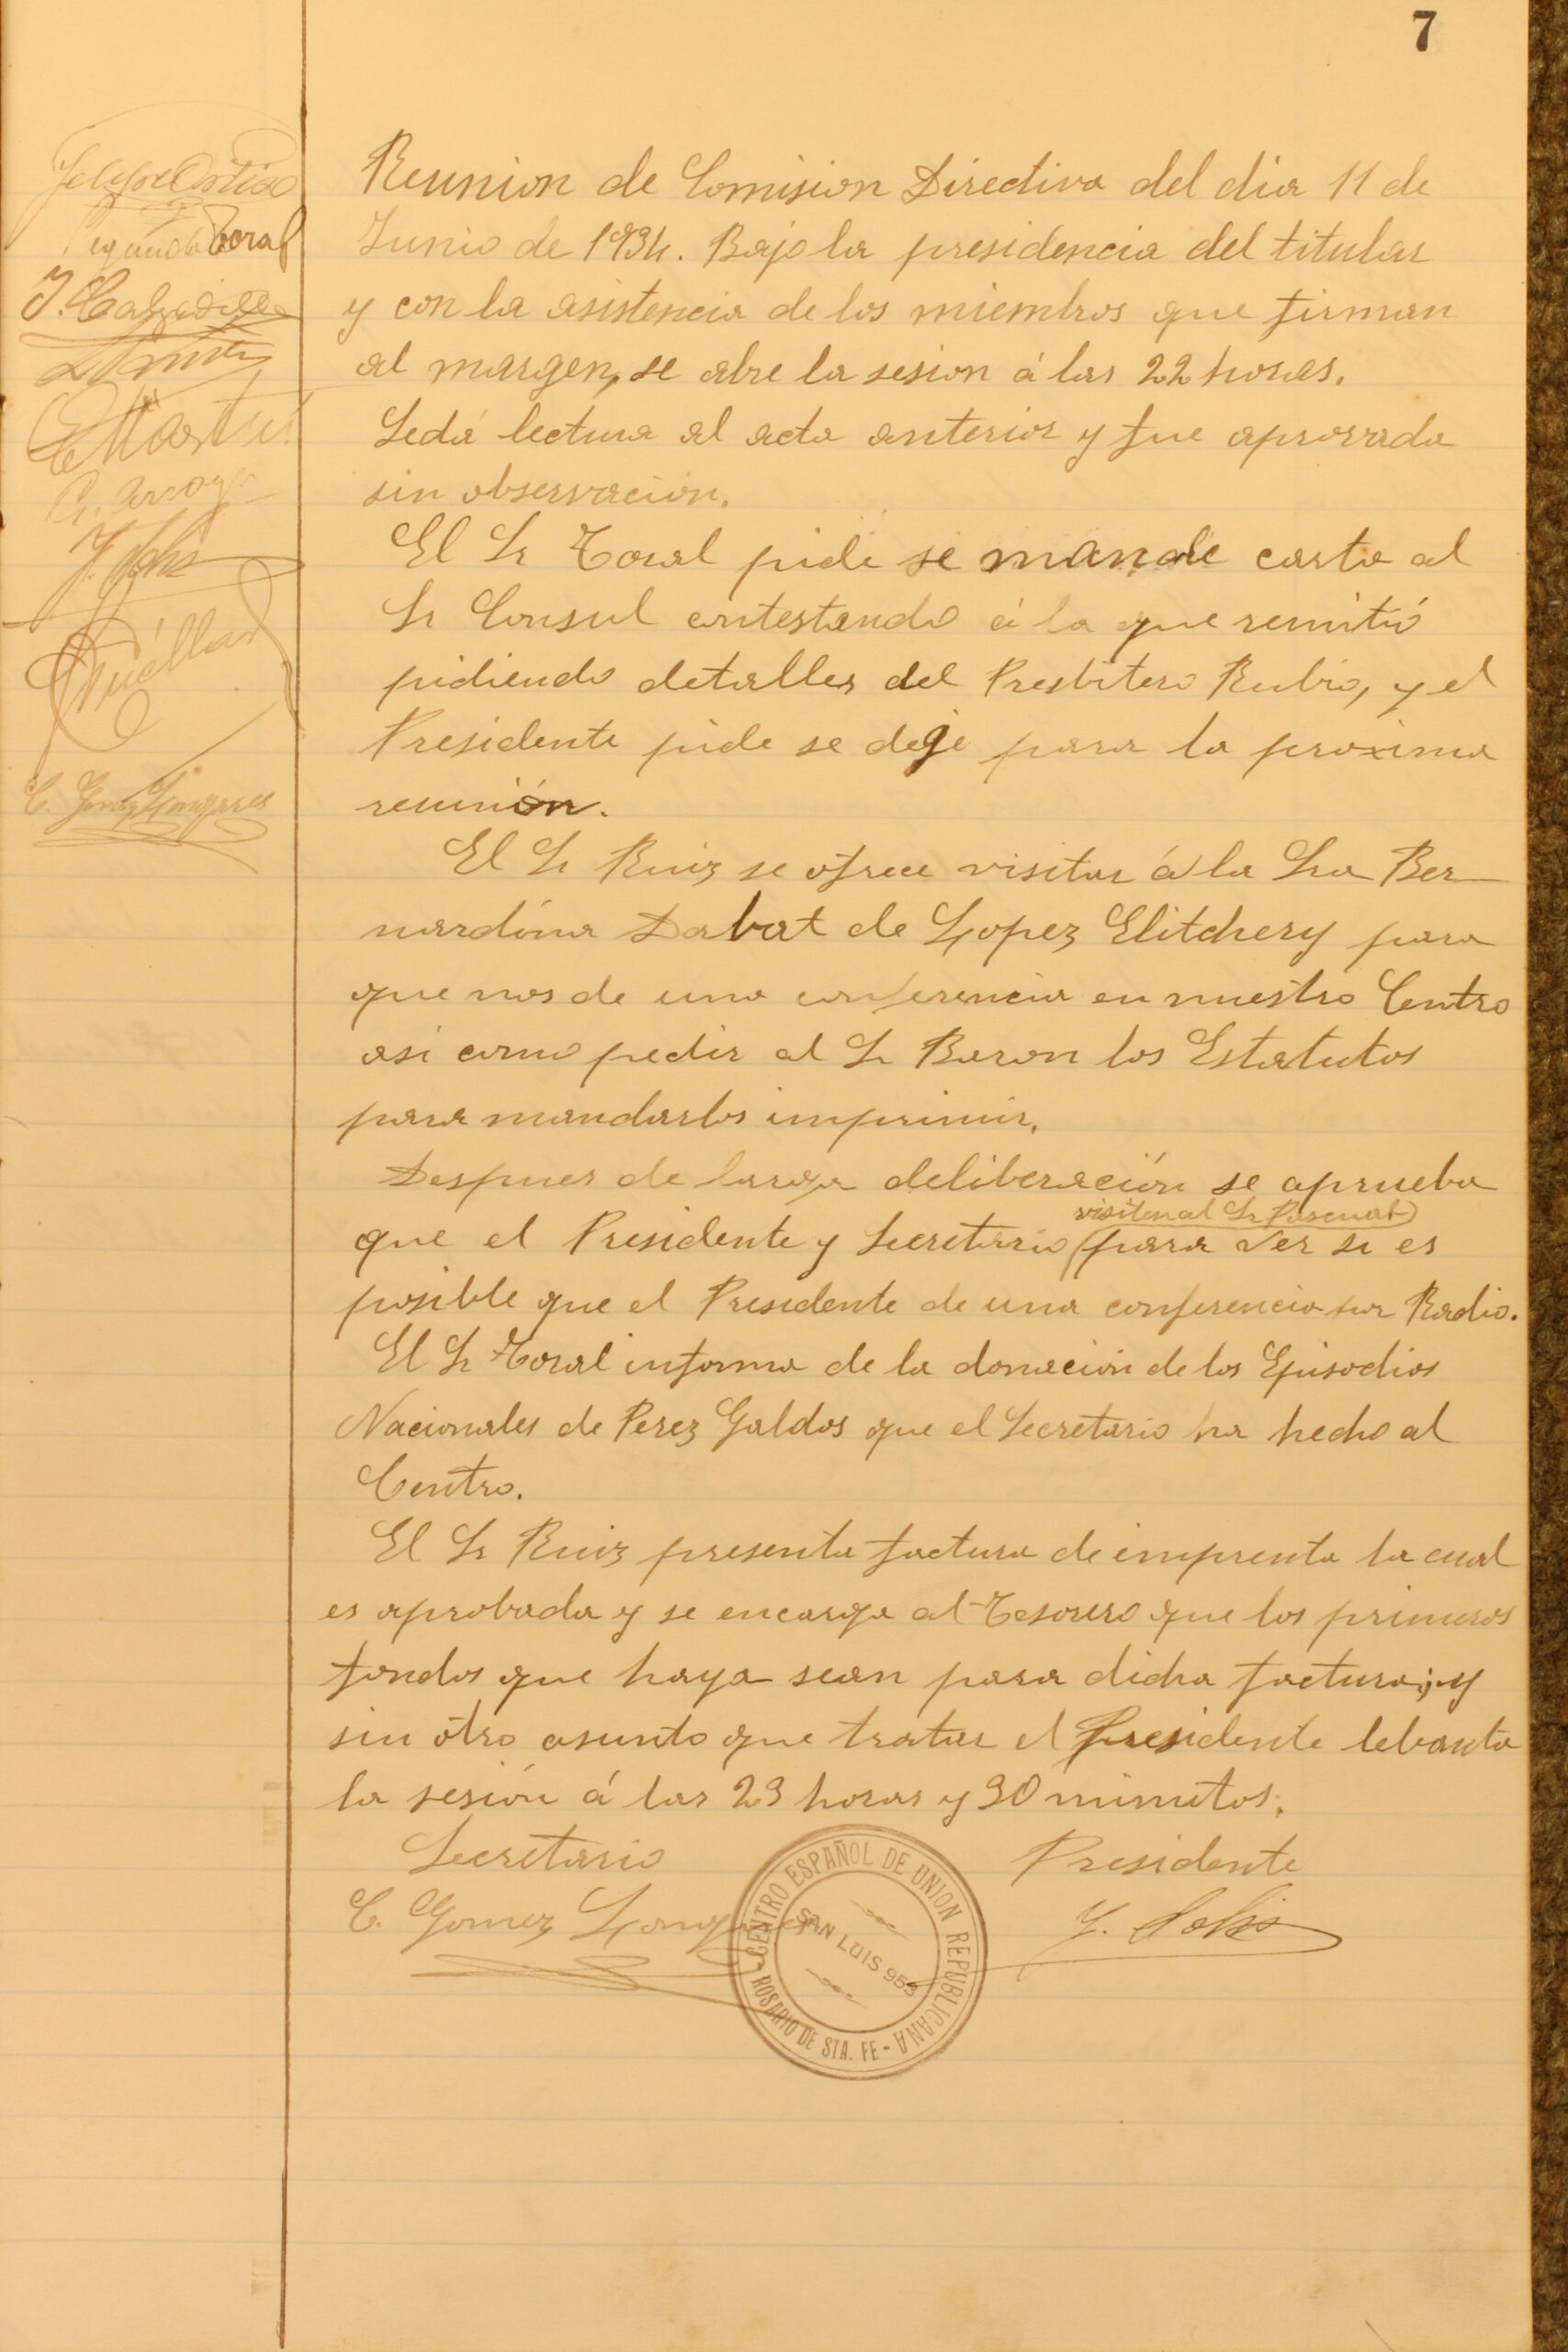 7
Felipe Ortiso
Segundo Toral
J. Calzadilla
E. Martes
G. Arroyo
J. Solis
Cuéllar
C. Gomez Longares
Reunion de Comision Directiva del dia 11 de
Junio de 1934. Bajo la presidencia del titular
y con la asistencia de los miembros que firman
al margen, se abre la sesion á las 22 horas.
Sedá lectura al acta anterior y fue aprovada
sin observación.
El Sr Toral pide se mande carta al
Sr Consul contestando á la que remitió
pidiendo detalles del Presbitero Rubio, y el
Presidente pide se deje para la proxima
reunión.
El Sr Ruiz se ofrece visitar á la Sra Ber
nardina Dabat de Lopez Elitchery para
que nos de una conferencia en nuestro Centro
asi como pedir al Sr Baron los Estatutos
para mandarlos imprimir.
Despues de larga deliberación se aprueba
visiten al Sr Pascual
que el Presidente y Secretario para ver si es
posible que el Presidente de una conferencia por Radio.
El Sr Toral informa de la donación de los Episodios
Nacionales de Perez Galdos que el Secretario ha hecho al
Centro.
El Sr Ruiz presenta factura de imprenta la cual
es aprobada y se encarga al Tesorero que los primeros
fondos que haya sean para dicha factura; y
sin otro asunto que tratar el Presidente lebanta
la sesión á las 23 horas y 30 minutos.
Secretario Presidente
C. Gomez Longares J. Solis
CENTRO ESPAÑOL DE UNION REPUBLICANA
SAN LUIS 953
ROSARIO DE STA. FE -